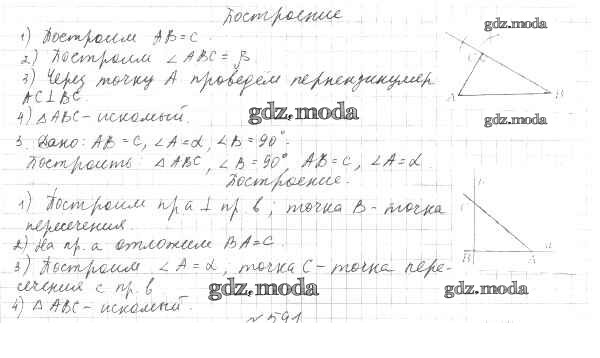 Построение
1) Построим AB=c.
2) Построим ∠ABC = β
3) Через точку A проведем перпендикуляр
AC⊥BC.
4) △ABC - искомый.
3. Дано: AB=c, ∠A=α, ∠B=90°.
Построить: △ABC, ∠B=90° AB=c, ∠A=α.
Построение.
1) Построим пр a ⊥ пр. в; точка B - точка
пересечения.
2) На пр. a отложим BA=c.
3) Построим ∠A=α; точка C - точка пере-
сечения с пр. в
4) △ABC - искомый.
№591
gdz.moda
A
C
B
gdz.moda
gdz.moda
B
A
a
gdz.moda
gdz.moda